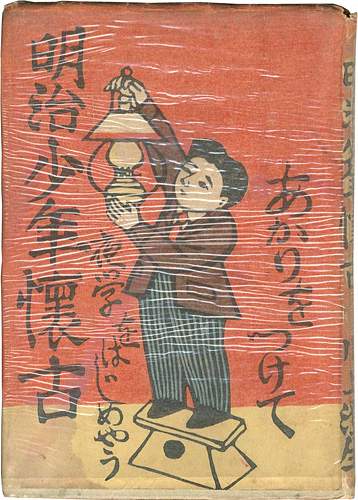 あかりを
つけて
夜学
をはじめやう
明治少年懐古